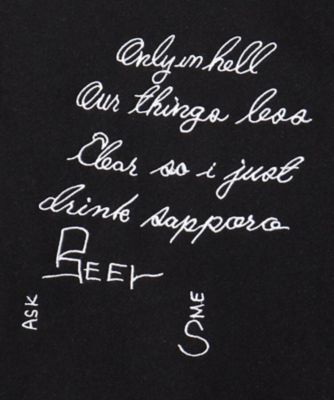 Only in hell
Our things less
Clear so i just
drink sapporo
BEEr
ASK
SME